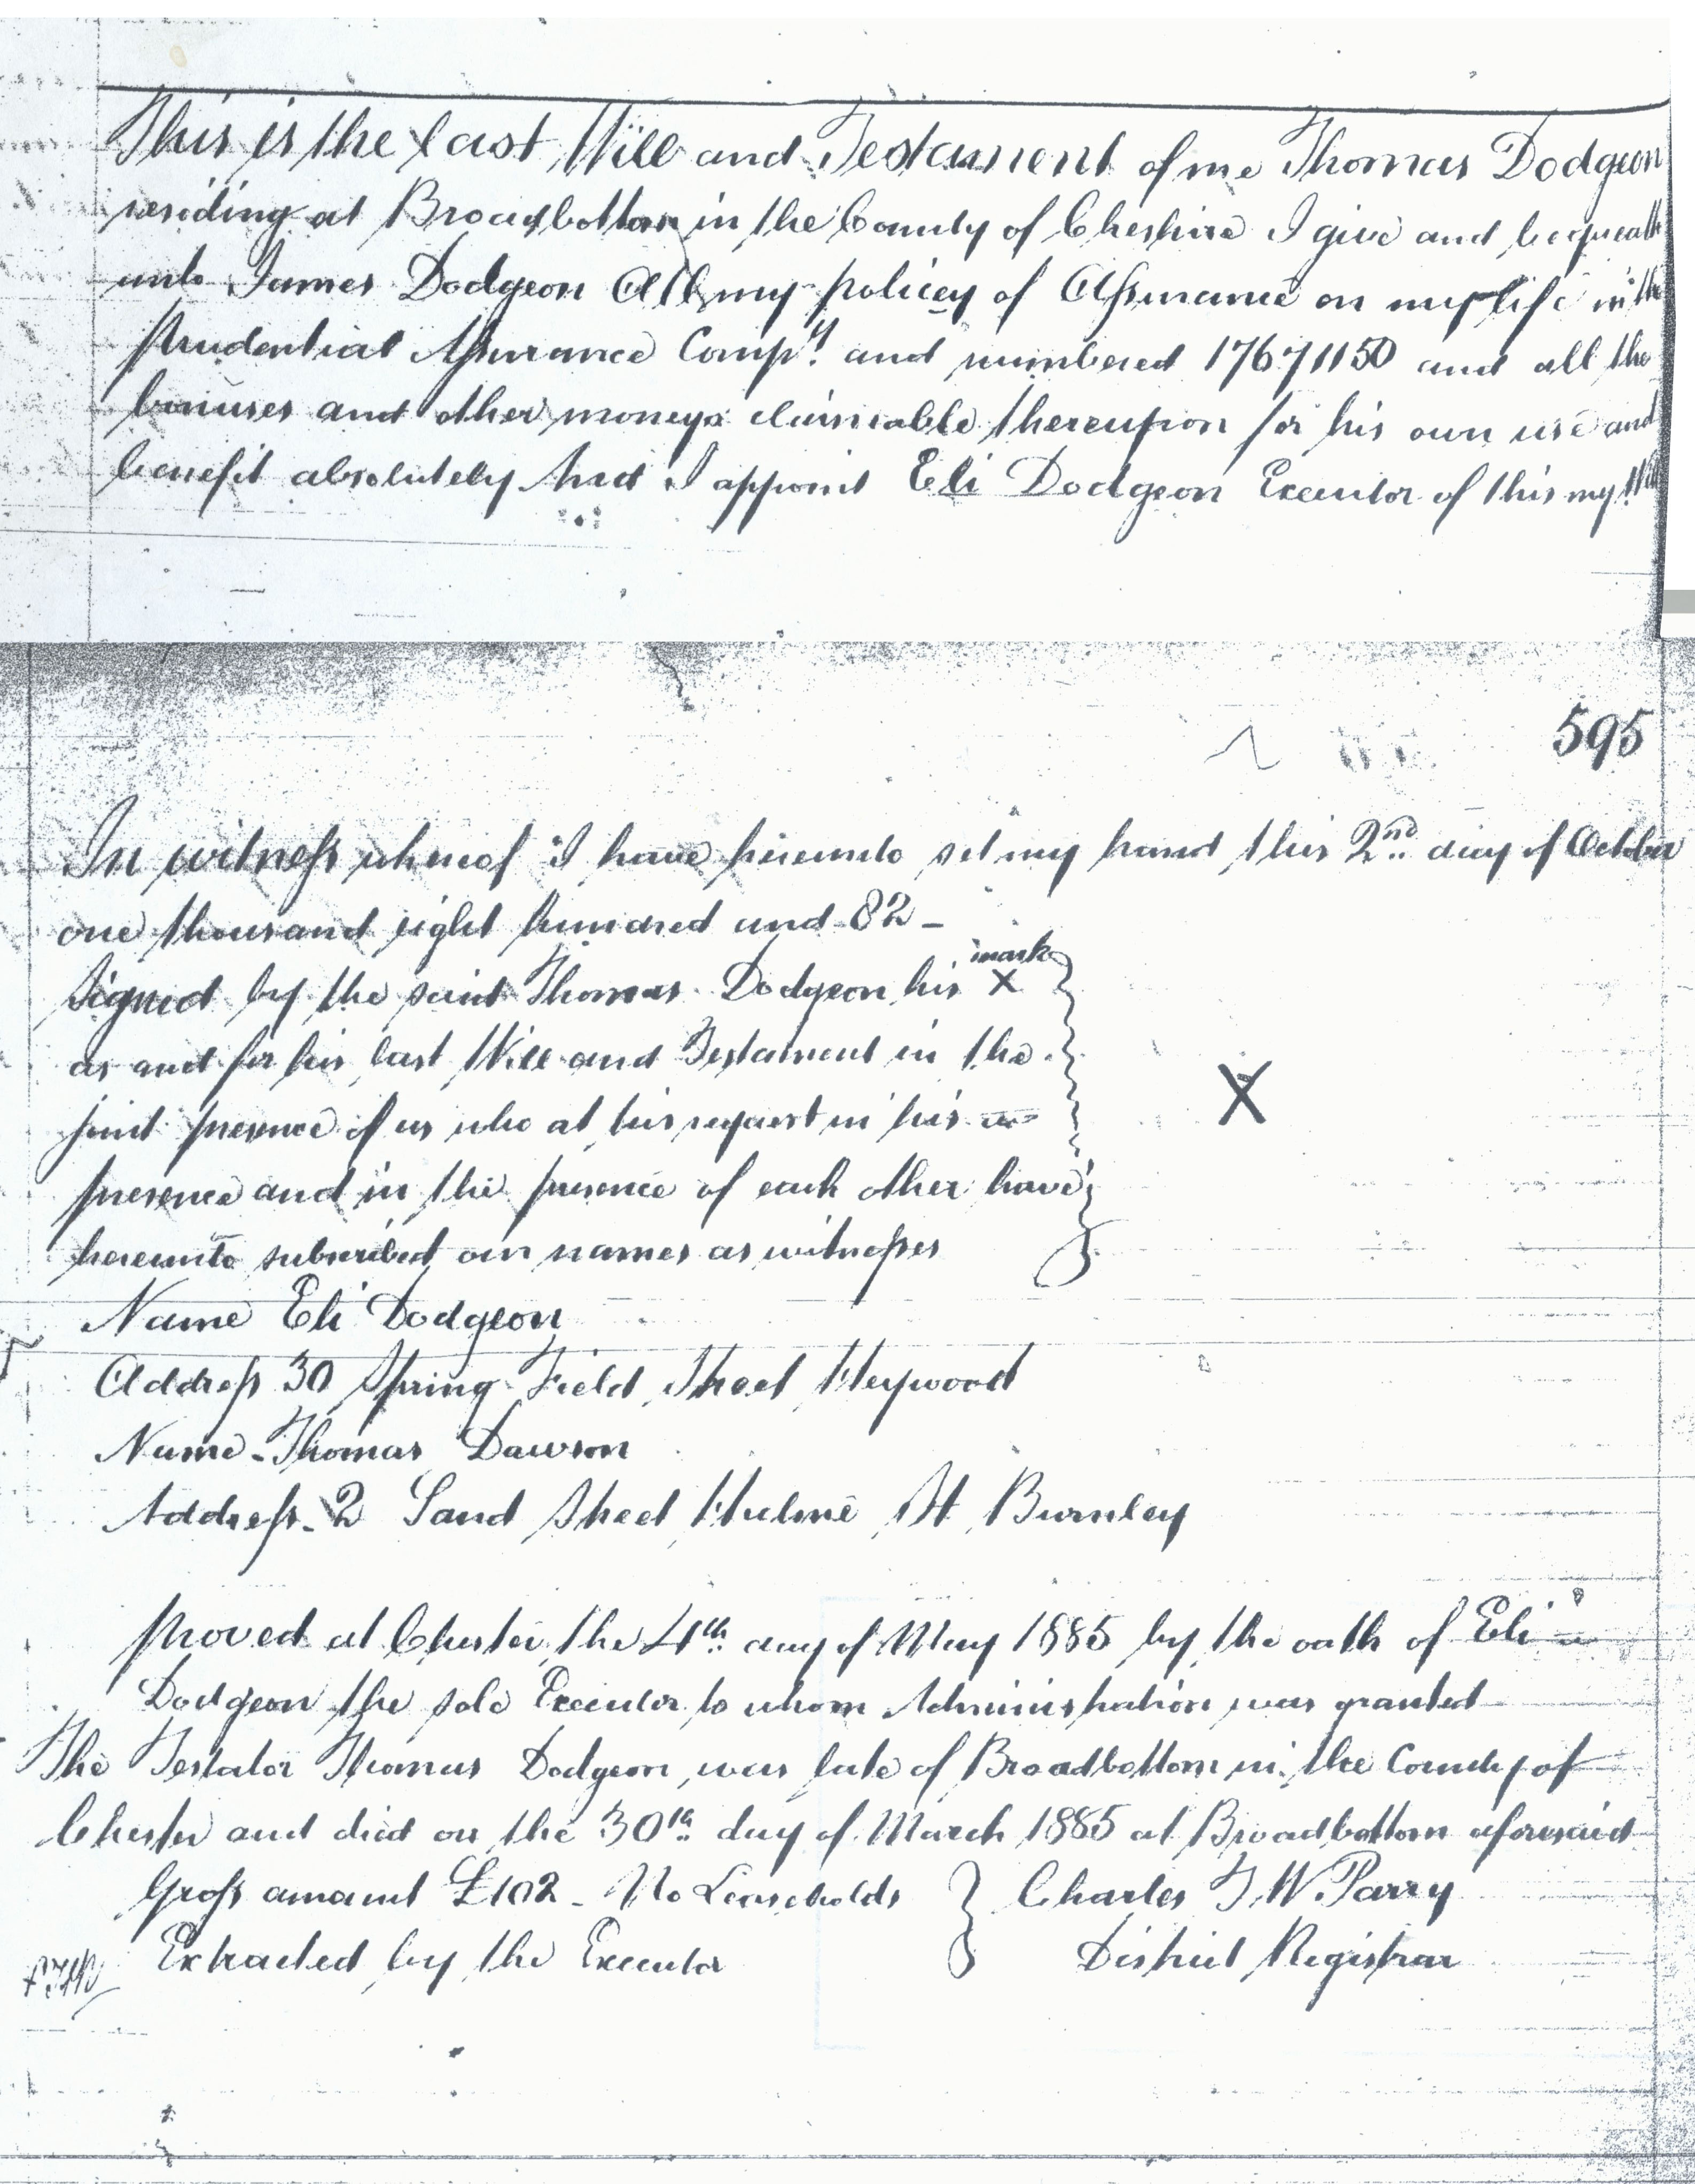 This is the last Will and Testament of me Thomas Dodgeon
residing at Broadbottom in the County of Cheshire I give and bequeath
unto James Dodgeon All my policey of Assurance on my life in the
Prudential Assurance Compy. and numbered 17671150 and all the
bonuses and other moneys claimable thereupon for his own use and
benefit absolutely And I appoint Eli Dodgeon Executor of this my Will
595
In witness whereof I have hereunto set my hand this 2nd. day of October
one thousand eight hundred and 82 -
mark
Signed by the said Thomas Dodgeon his X
as and for his last Will and Testament in the
X
joint presence of us who at his request in his
presence and in the presence of each other have
hereunto subscribed our names as witnesses
Name Eli Dodgeon
Address 30 Spring Field Street Heywood
Name - Thomas Dawson
Address - 2 Sand Street Hulme St Burnley
Proved at Chester the 4th. day of May 1885 by the oath of Eli
Dodgeon the sole Executor to whom Administration was granted
The Testator Thomas Dodgeon was late of Broadbottom in the County of
Chester and died on the 30th. day of March 1885 at Broadbottom aforesaid
Gross amount £102 - No Leaseholds } Charles T. W. Parry
Extracted by the Executor District Registrar